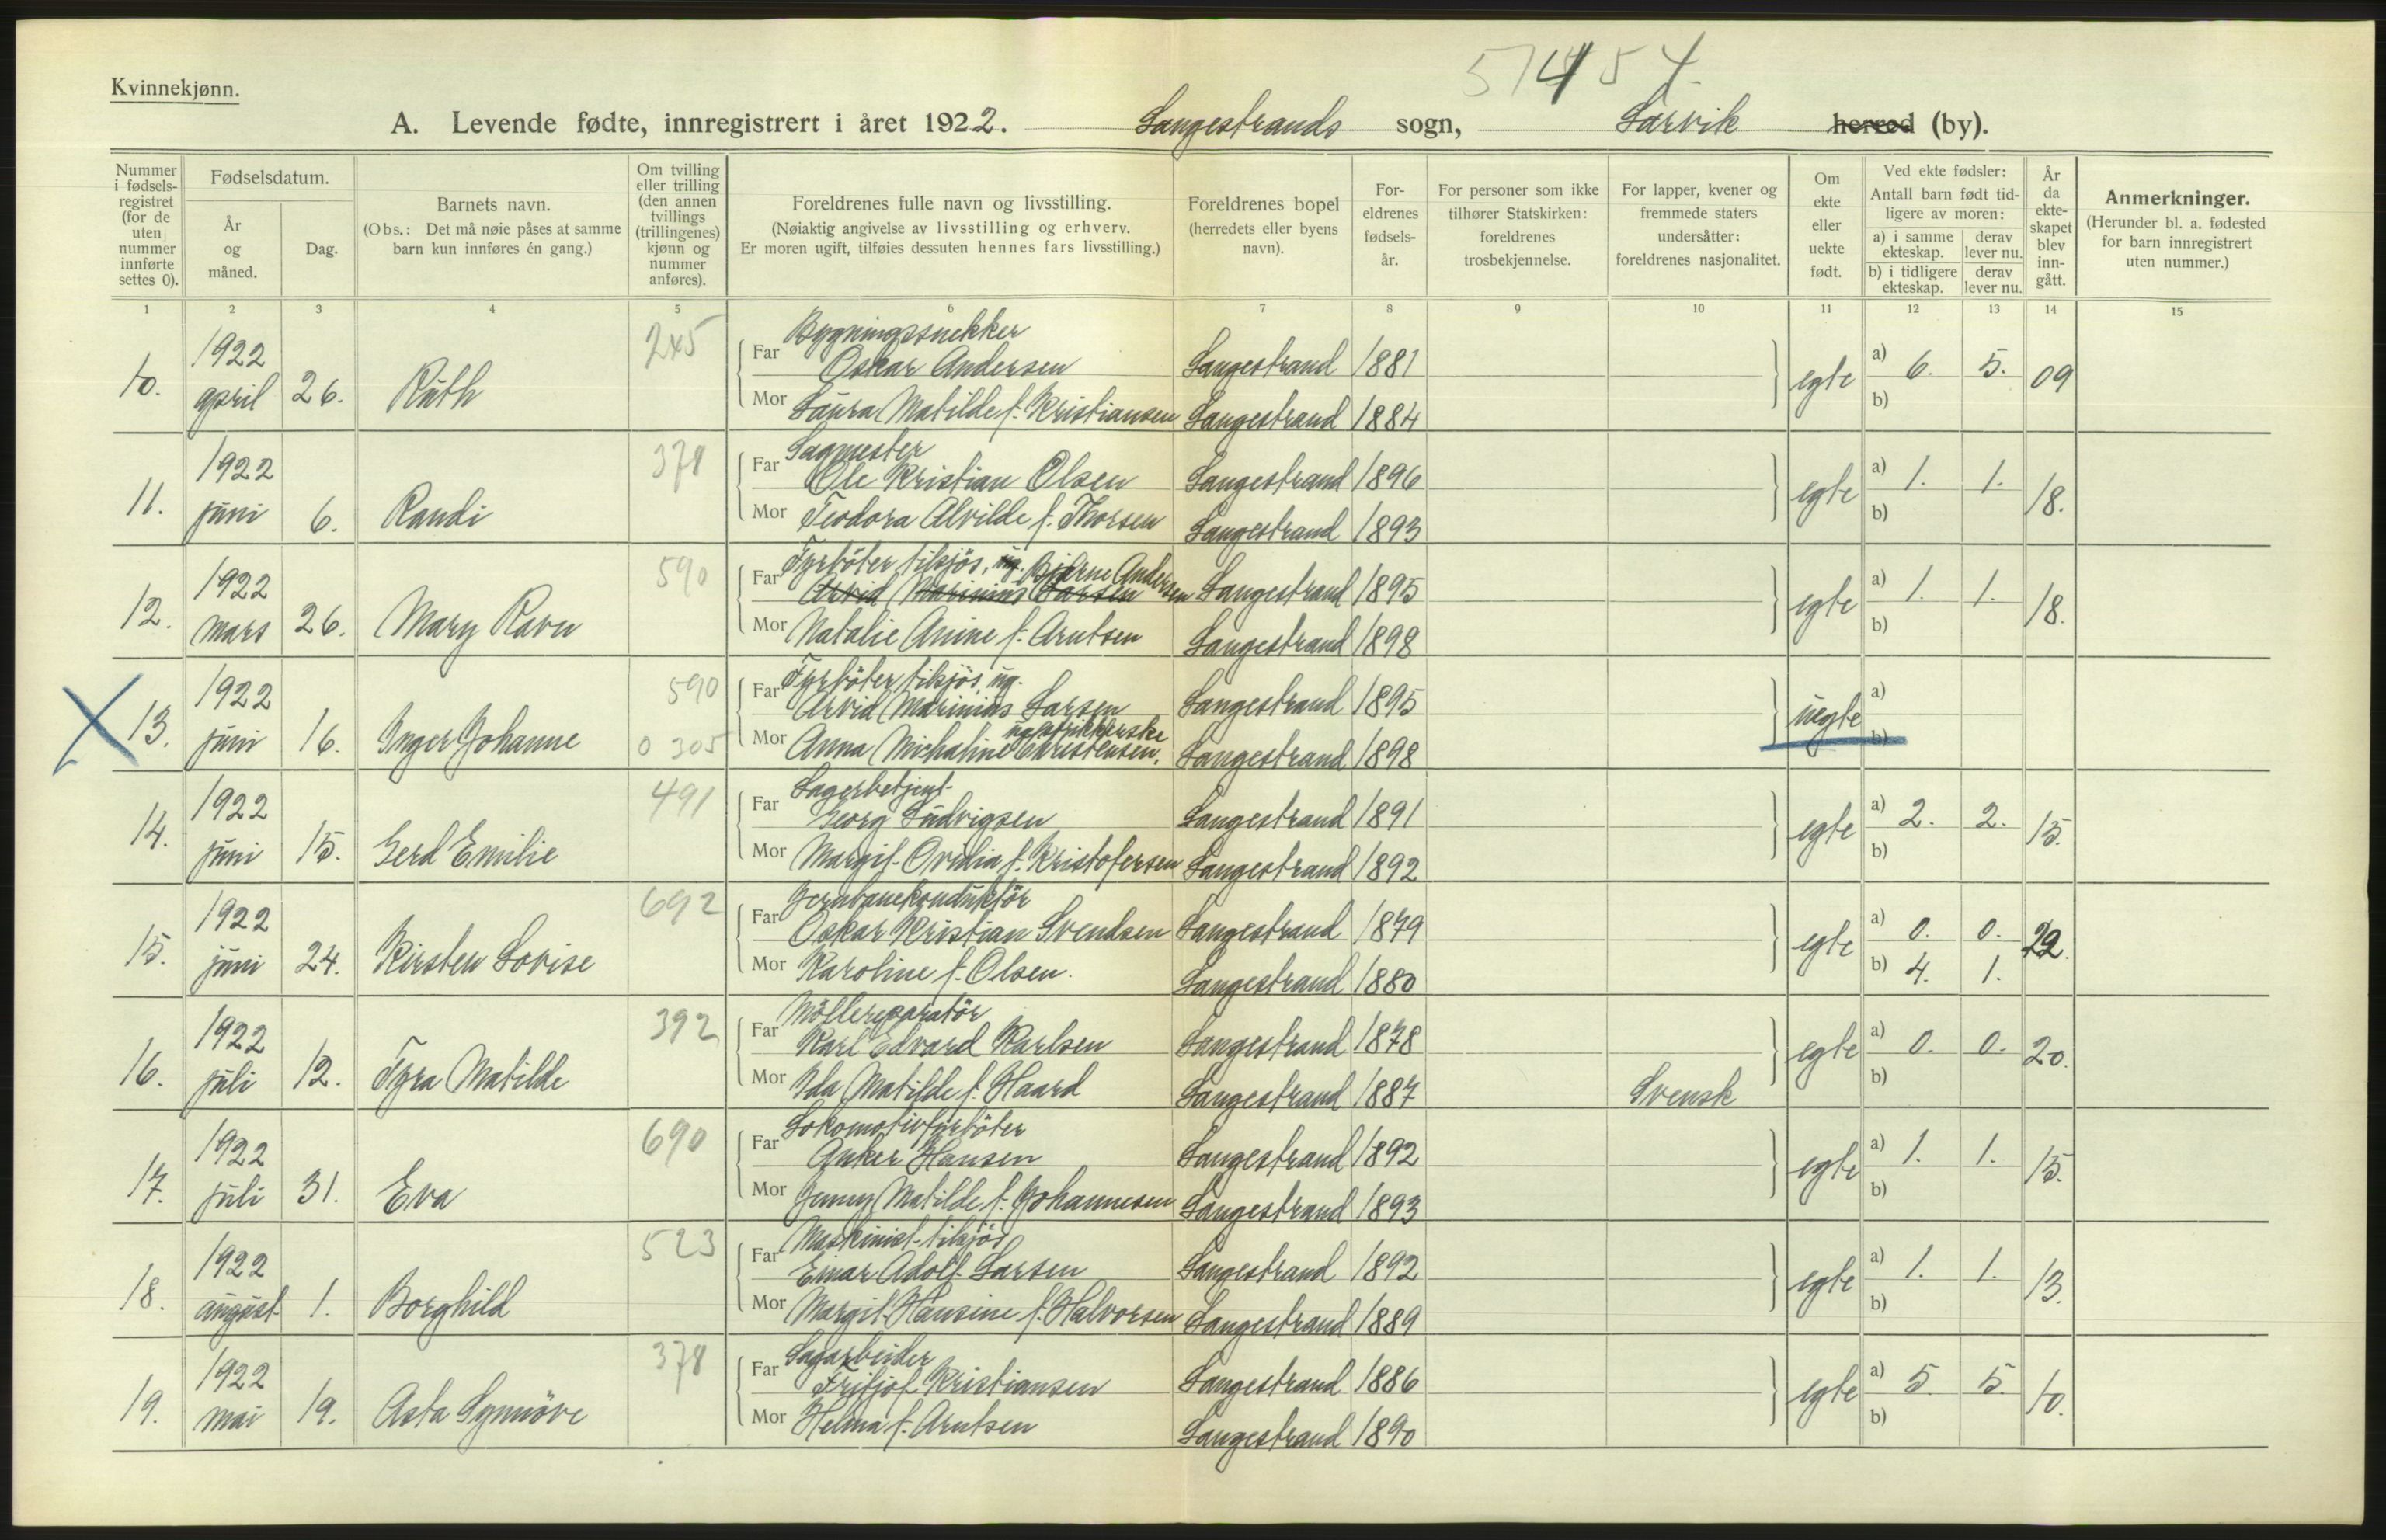 Kvinnekjønn.
51454.
A. Levende fødte, innregistrert i året 1922. Langestrands sogn, Larvik herred (by).
Nummer i fødselsregistret (for de uten nummer innførte settes 0).
Fødselsdatum.
År og måned.
Dag.
Barnets navn.
(Obs.: Det må nøie påses at samme barn kun innføres én gang.)
Om tvilling eller trilling (den annen tvillings (trillingenes) kjønn og nummer anføres).
Foreldrenes fulle navn og livsstilling.
(Nøiaktig angivelse av livsstilling og erhverv.
Er moren ugift, tilføies dessuten hennes fars livsstilling.)
Foreldrenes bopel (herredets eller byens navn).
Foreldrenes fødselsår.
For personer som ikke tilhører Statskirken: foreldrenes trosbekjennelse.
For lapper, kvener og fremmede staters undersåtter: foreldrenes nasjonalitet.
Om ekte eller uekte født.
Ved ekte fødsler: Antall barn født tidligere av moren:
a) i samme ekteskap. derav lever nu.
b) i tidligere ekteskap. derav lever nu.
År da ekteskapet blev inngått.
Anmerkninger.
(Herunder bl. a. fødested for barn innregistrert uten nummer.)
1 2 3 4 5 6 7 8 9 10 11 12 13 14 15
10. 1922 april 26. Ruth 245
Far Bygningssnekker Oskar Andersen Langestrand 1881 egte a) 6. 5. 09
Mor Laura Matilde f. Kristiansen Langestrand 1884 b)
11. 1922 juni 6. Randi 378
Far Sagmester Ole Kristian Olsen Langestrand 1896 egte a) 1. 1. 18.
Mor Teodora Alvilde f. Thorsen Langestrand 1893 b)
12. 1922 mars 26. Mary Ravn 590
Far Fyrböter tilsjös, ug. Bjarne Andersen Arvid Marinius Larsen Langestrand 1895 egte a) 1. 1. 18.
Mor Natalie Anine f. Arntsen Langestrand 1898 b)
13. 1922 juni 16. Inger Johanne 590 0 305
Far Fyrböter tilsjös, ug. Arvid Marinius Larsen Langestrand 1895 uegte a)
Mor Anna Michaline Christensen, ug strikkerske Langestrand 1898 b)
14. 1922 juni 15. Gerd Emilie 491
Far Lagerbetjent Georg Ludvigsen Langestrand 1891 egte a) 2. 2. 15.
Mor Margit Ovidia f. Kristofersen Langestrand 1892 b)
15. 1922 juni 24. Kirsten Lovise 692
Far Jernbanekonduktör Oskar Kristian Svendsen Langestrand 1879 egte a) 0. 0. 22.
Mor Karoline f. Olsen. Langestrand 1880 b) 4. 1.
16. 1922 juli 12. Tyra Matilde 392
Far Möllereparatör Karl Edvard Karlsen Langestrand 1878 egte a) 0. 0. 20.
Mor Ida Matilde f. Haard Langestrand 1887 Svensk b)
17. 1922 juli 31. Eva 690
Far Lokomotivfyrböter Anker Hansen Langestrand 1892 egte a) 1. 1. 15.
Mor Jenny Matilde f. Johannesen Langestrand 1893 b)
18. 1922 august 1. Borghild 523
Far Maskinist tilsjös Einar Adolf Larsen Langestrand 1892 egte a) 1. 1. 13.
Mor Margit Hansine f. Halvorsen Langestrand 1889 b)
19. 1922 mai 19. Asta Synnöve 378
Far Sagarbeider Fritjof Kristiansen Langestrand 1886 egte a) 5. 5. 10.
Mor Helma f. Arntsen Langestrand 1890 b)